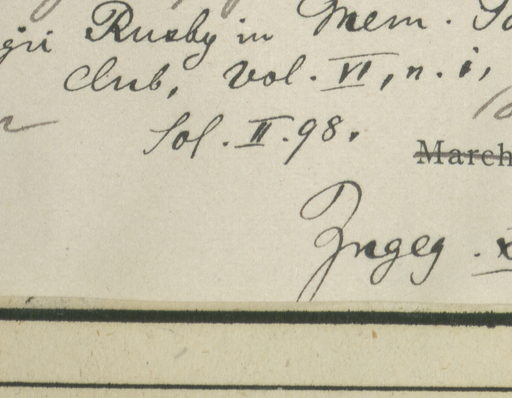 Rusby in Mem.
Club, Vol. VI, n. i,
Sol. II. 98.
March